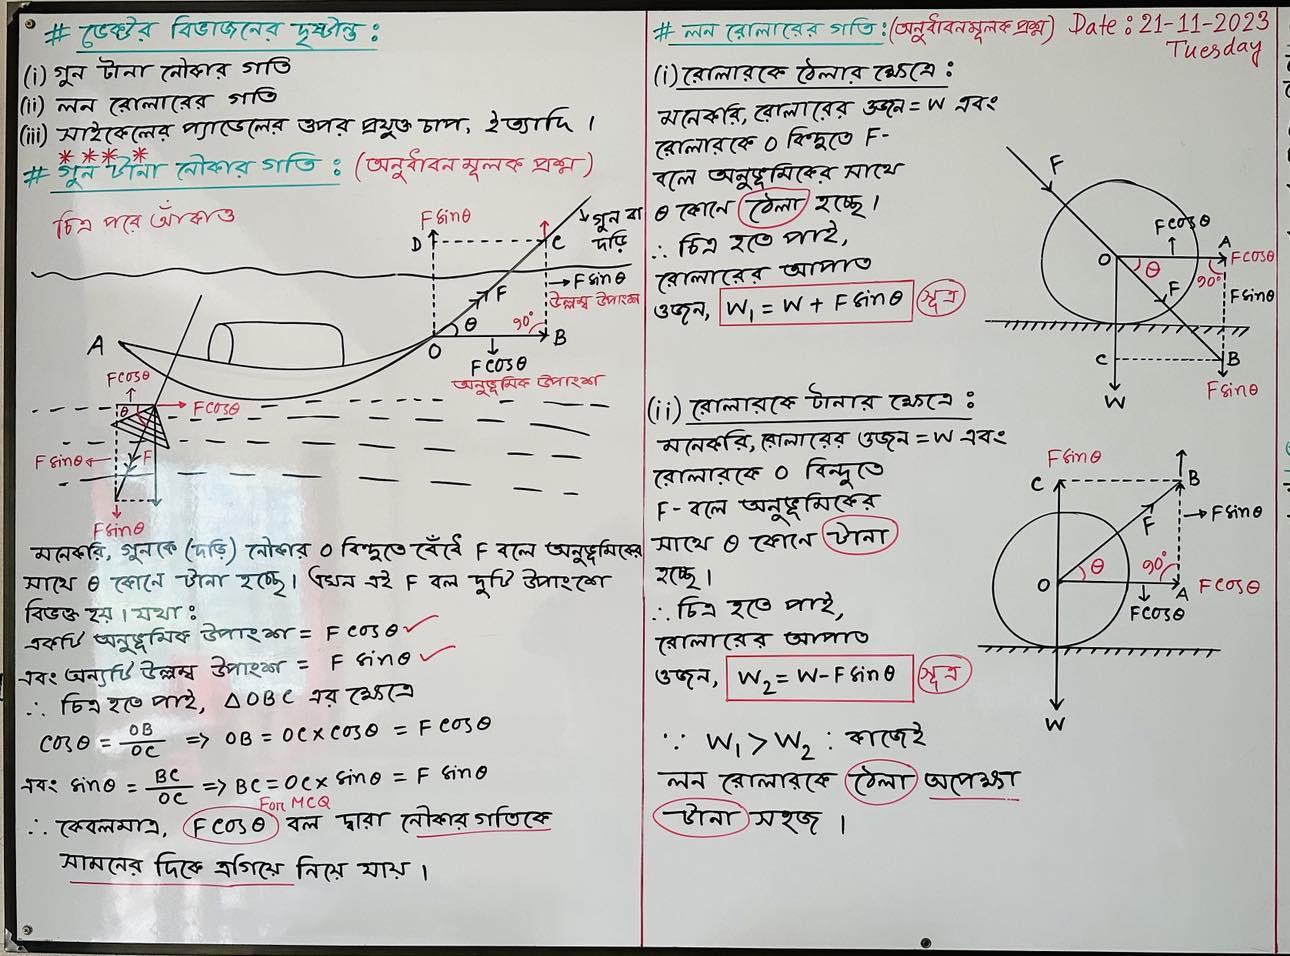 # ভেক্টর বিভাজনের দৃষ্টান্ত :
(i) গুন টানা নৌকার গতি
(ii) লন রোলারের গতি
(iii) সাইকেলের প্যাডেলের ওপর প্রযুক্ত চাপ, ইত্যাদি ।
* * * *
# গুন টানা নৌকার গতি : (অনুধাবন মূলক প্রশ্ন)
চিত্র পরে আঁকাও
F sinθ
D
C
গুন বা
দড়ি
F
→ F sinθ
উল্লম্ব উপাংশ
A
O
θ
90°
B
F cosθ
অনুভূমিক উপাংশ
F cosθ
θ
F cosθ
F sinθ
F
F sinθ
মনেকরি, গুনকে (দড়ি) নৌকার O বিন্দুতে বেঁধে F বলে অনুভূমিকের
সাথে θ কোনে টানা হচ্ছে। এখন এই F বল দুটি উপাংশে
বিভক্ত হয়। যথা :
একটি অনুভূমিক উপাংশ = F cosθ ✓
এবং অন্যটি উল্লম্ব উপাংশ = F sinθ ✓
∴ চিত্র হতে পাই, △OBC এর ক্ষেত্রে
cosθ = OB/OC => OB = OC × cosθ = F cosθ
এবং sinθ = BC/OC => BC = OC × sinθ = F sinθ
For MCQ
∴ কেবলমাত্র, F cosθ বল দ্বারা নৌকার গতিকে
সামনের দিকে এগিয়ে নিয়ে যায় ।
# লন রোলারের গতি : (অনুধাবনমূলক প্রশ্ন) Date : 21-11-2023
Tuesday
(i) রোলারকে ঠেলার ক্ষেত্রে :
মনেকরি, রোলারের ওজন = W এবং
রোলারকে O বিন্দুতে F-
বলে অনুভূমিকের সাথে
θ কোনে ঠেলা হচ্ছে।
∴ চিত্র হতে পাই,
রোলারের আপাত
ওজন, W₁ = W + F sinθ সূত্র
F
F cosθ
A
F cosθ
O
θ
90°
F
F sinθ
C
B
W
F sinθ
(ii) রোলারকে টানার ক্ষেত্রে :
মনেকরি, রোলারের ওজন = W এবং
রোলারকে O বিন্দুতে
F- বলে অনুভূমিকের
সাথে θ কোনে টানা
হচ্ছে।
∴ চিত্র হতে পাই,
রোলারের আপাত
ওজন, W₂ = W - F sinθ সূত্র
F sinθ
C
B
F
→ F sinθ
O
θ
90°
A
F cosθ
F cosθ
W
∵ W₁ > W₂ : কাজেই
লন রোলারকে ঠেলা অপেক্ষা
টানা সহজ ।